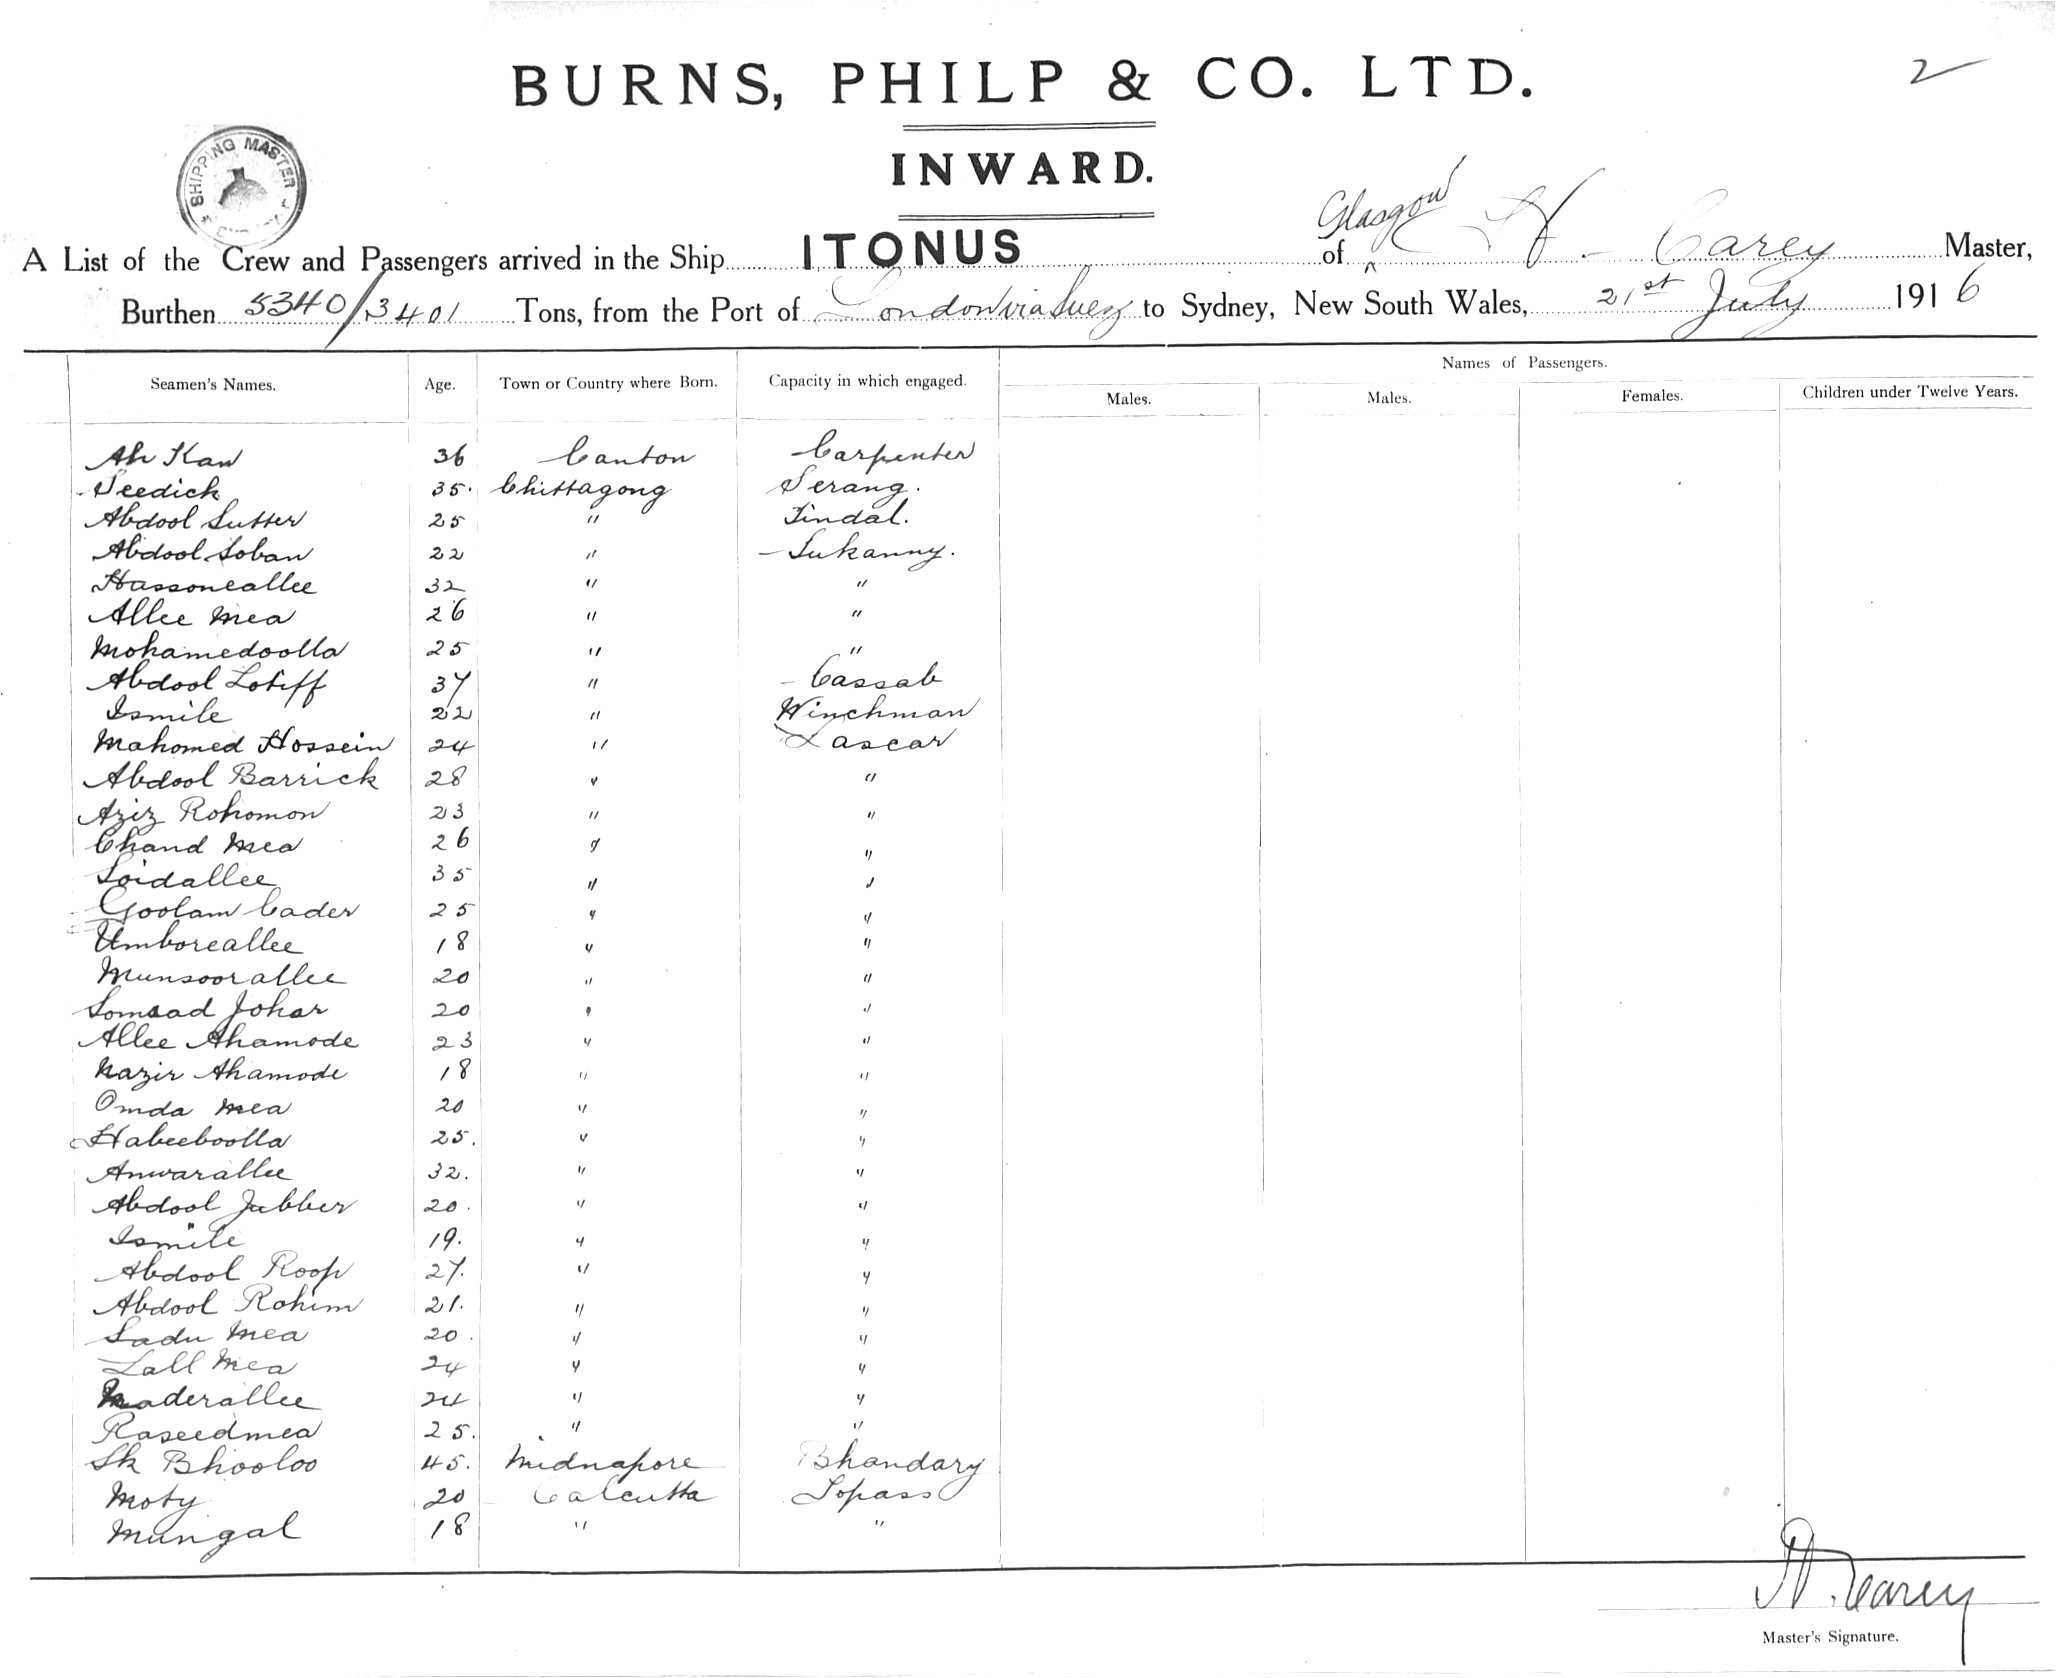 BURNS, PHILP & CO. LTD.
2
INWARD.
SHIPPING MASTER
Glasgow
A List of the Crew and Passengers arrived in the Ship ITONUS of H. Carey Master,
Burthen 5340/3401 Tons, from the Port of London via Suez to Sydney, New South Wales, 21st July 1916
Names of Passengers.
Seamen's Names. Age. Town or Country where Born. Capacity in which engaged. Males. Males. Females. Children under Twelve Years.
Ah Kaw 36 Canton Carpenter
Seedick 35. Chittagong Serang.
Abdool Sutter 25 " Tindal.
Abdool Soban 22 " Sukanny.
Hassoneallee 32 " "
Allee Mea 26 " "
Mohamedoolla 25 " "
Abdool Lotiff 37 " Cassab
Ismile 22 " Winchman
Mahomed Hossein 24 " Lascar
Abdool Barrick 28 " "
Aziz Rohomon 23 " "
Chand Mea 26 " "
Soidallee 35 " "
Goolam Cader 25 " "
Umboreallee 18 " "
Munsoorallee 20 " "
Somsad Johar 20 " "
Allee Ahamode 23 " "
Nazir Ahamode 18 " "
Omda Mea 20 " "
Habeeboolla 25. " "
Anwarallee 32. " "
Abdool Jubber 20. " "
Ismile 19. " "
Abdool Roop 27. " "
Abdool Rohim 21. " "
Sadu Mea 20. " "
Lall Mea 24 " "
Maderallee 24 " "
Raseedmea 25. " "
Sk Bhooloo 45. Midnapore Bhandary
Moty 20 Calcutta Topass
Mungal 18 " "
H. Carey
Master's Signature.